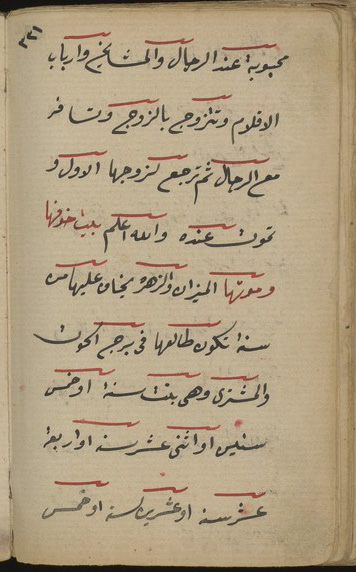 ٣٣١
محبوبة عند الرجال والمشايخ وارباب
الاقلام وتتزوج بالزوج وتسافر
مع الرجال ثم ترجع لزوجها الاول و
تموت عنده والله اعلم بليت خوفها
وموتها الميزان والزهره يخاف عليها من
سنة تكون طالعها في برج الحوت
والمشترى وهى بنت سنة او خمس
سنين او اثنى عشر سنه او اربعة
عشر سنه او عشرين سنه او خمس